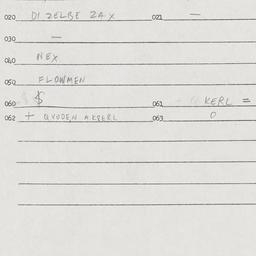 020 DI ZELBE ZAX 021 —
030 —
040 NEX
050 FLOWMEN
060 $ 061 KERL =
062 + QVODEN AKBERL 063 0